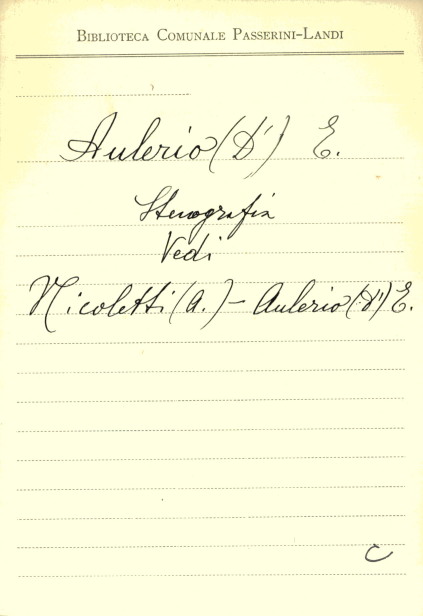 Biblioteca Comunale Passerini-Landi
Aulerio (D') E.
Stenografia
Vedi
Nicoletti (A.) - Aulerio (D') E.
C